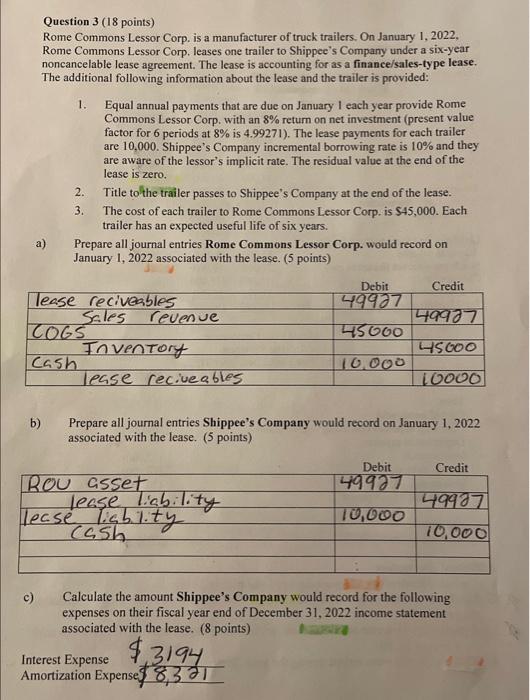 Question 3 (18 points)
Rome Commons Lessor Corp. is a manufacturer of truck trailers. On January 1, 2022,
Rome Commons Lessor Corp. leases one trailer to Shippee's Company under a six-year
noncancelable lease agreement. The lease is accounting for as a finance/sales-type lease.
The additional following information about the lease and the trailer is provided:
1. Equal annual payments that are due on January 1 each year provide Rome
Commons Lessor Corp. with an 8% return on net investment (present value
factor for 6 periods at 8% is 4.99271). The lease payments for each trailer
are 10,000. Shippee's Company incremental borrowing rate is 10% and they
are aware of the lessor's implicit rate. The residual value at the end of the
lease is zero.
2. Title to the trailer passes to Shippee's Company at the end of the lease.
3. The cost of each trailer to Rome Commons Lessor Corp. is $45,000. Each
trailer has an expected useful life of six years.
a) Prepare all journal entries Rome Commons Lessor Corp. would record on
January 1, 2022 associated with the lease. (5 points)
Debit Credit
lease reciveables 49927
Sales revenue 49927
COGS 45000
Inventory 45000
Cash 10.000
lease reciveables 10000
b) Prepare all journal entries Shippee's Company would record on January 1, 2022
associated with the lease. (5 points)
Debit Credit
ROU asset 49927
lease liability 49927
lease liability 10,000
cash 10,000
c) Calculate the amount Shippee's Company would record for the following
expenses on their fiscal year end of December 31, 2022 income statement
associated with the lease. (8 points)
Interest Expense $3194
Amortization Expense $8,321